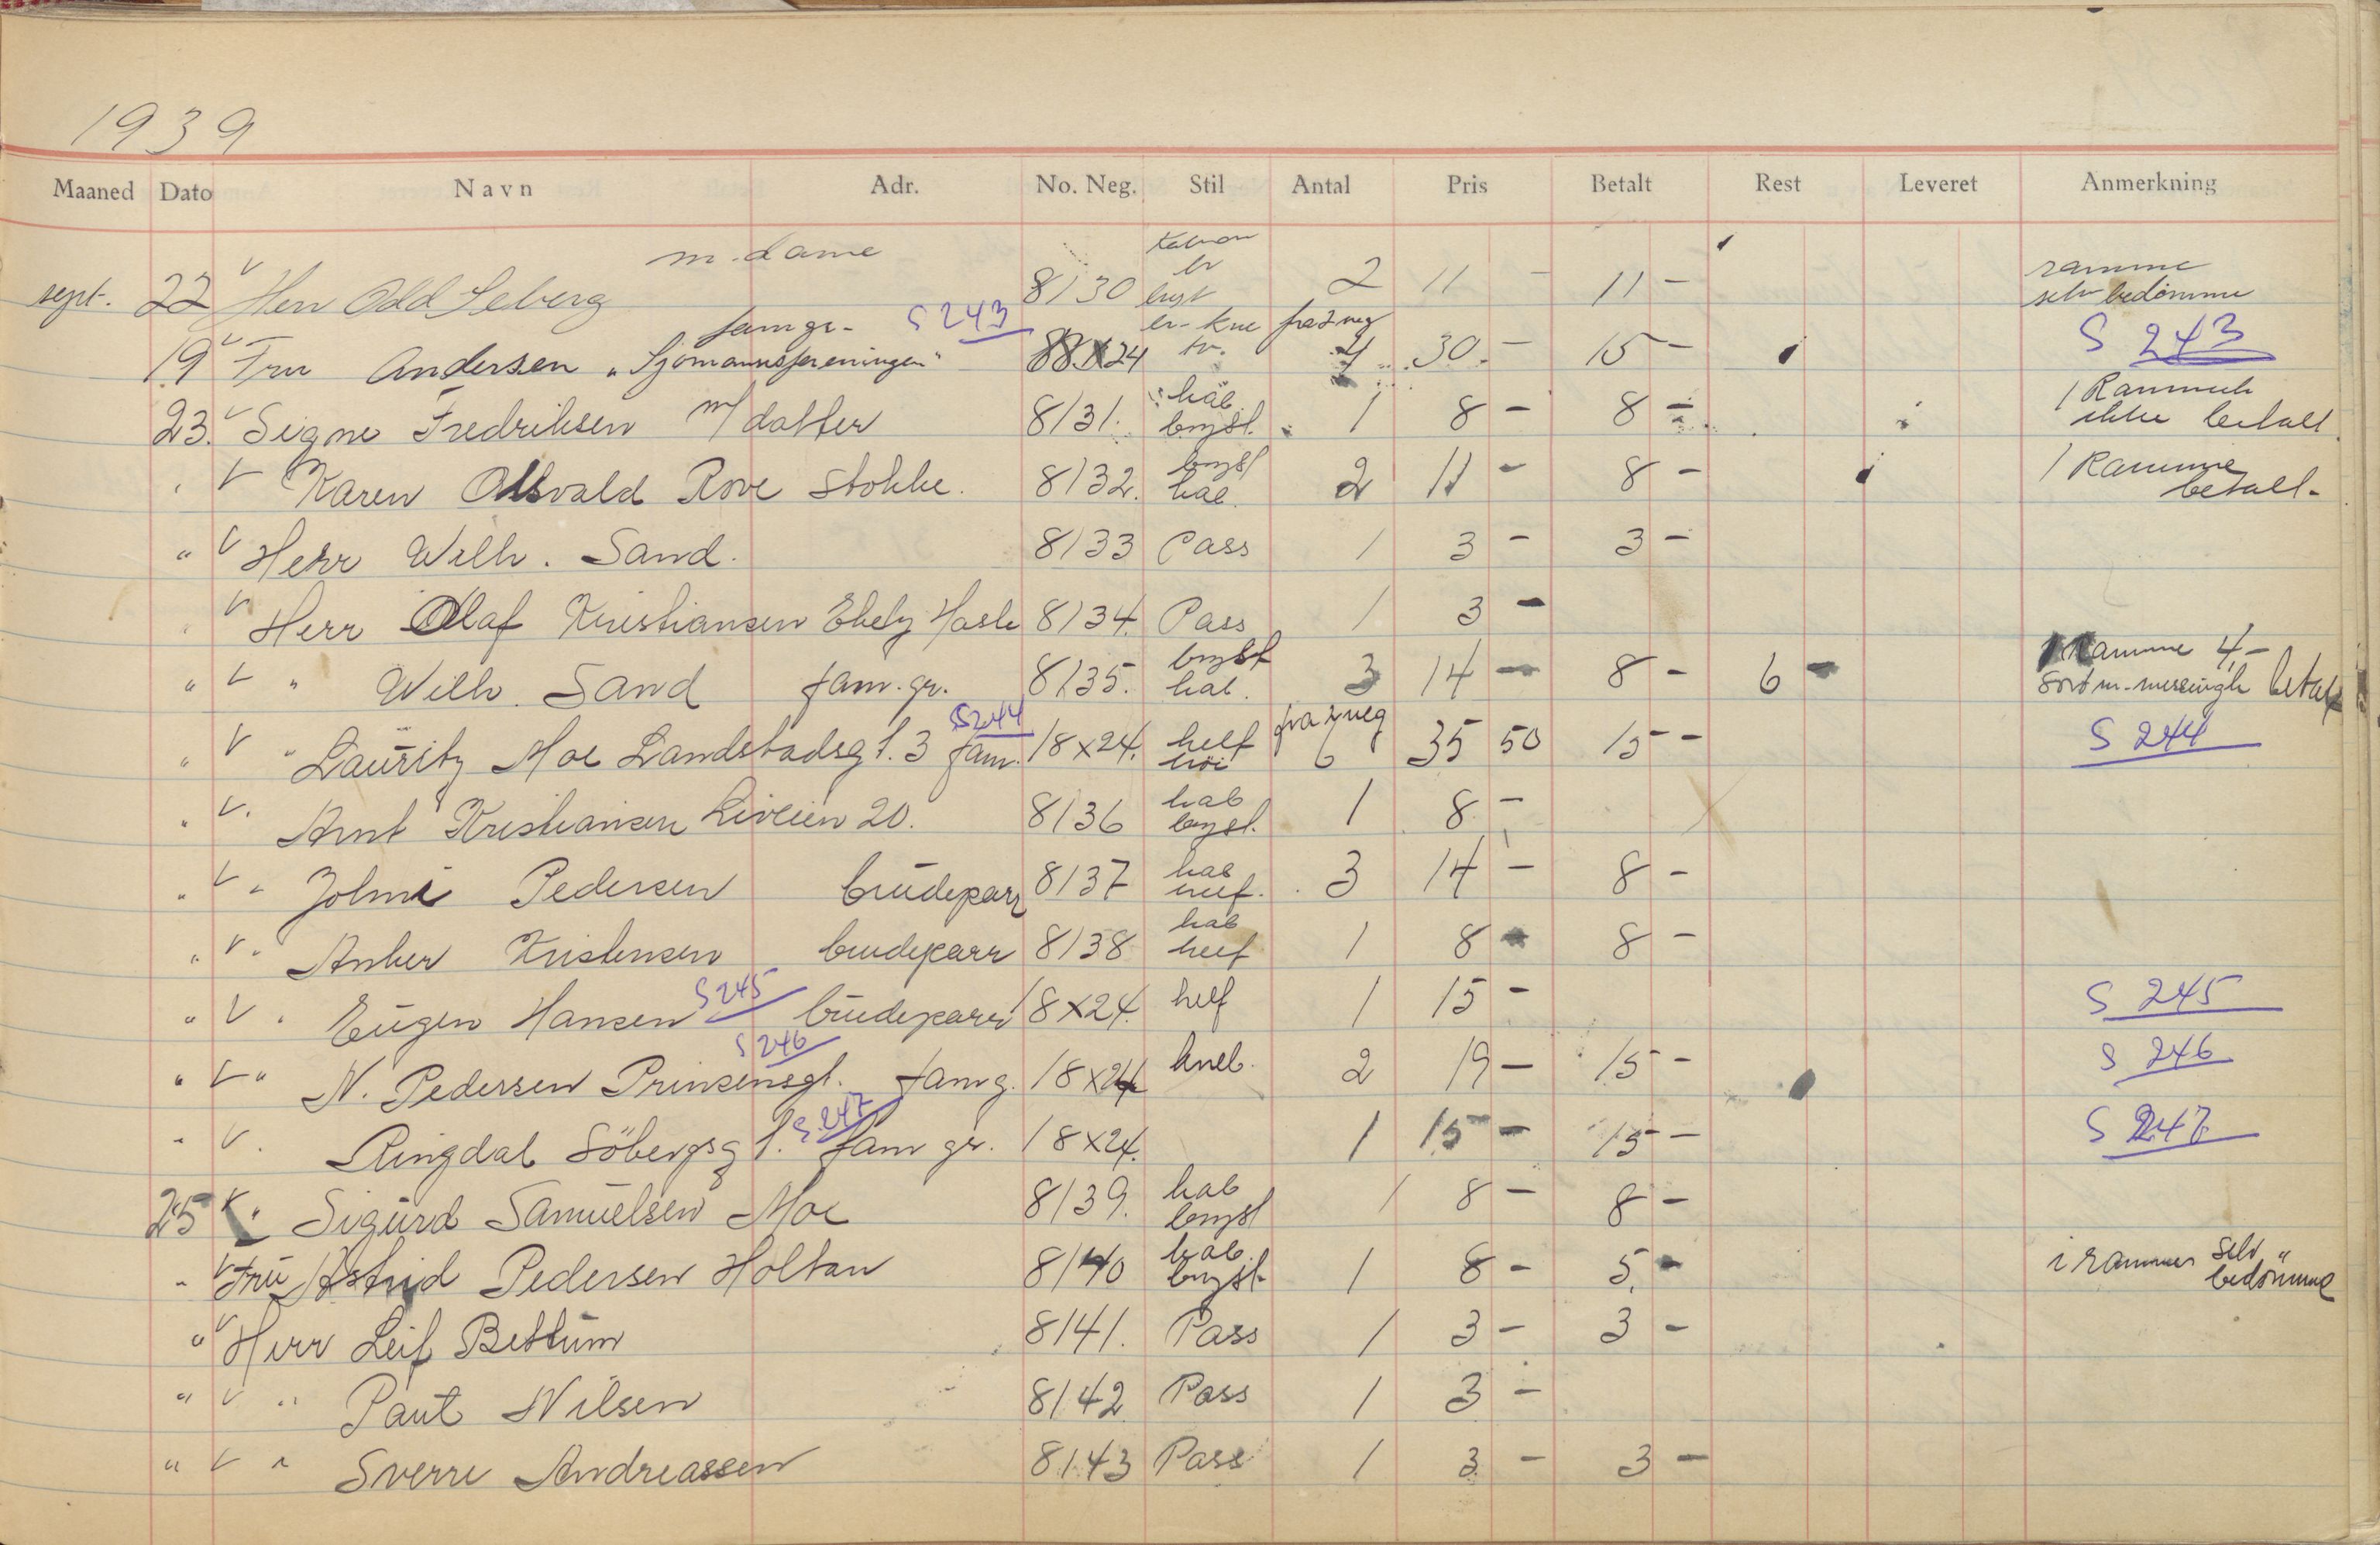 1939
Maaned Dato Navn Adr. No. Neg. Stil Antal Pris Betalt Rest Leveret Anmerkning
sept. 22 V Herr Odd Leberg m. dame 8130 2 11 - 11 - ramme selv bedömme
19 V Fru Andersen "Sjømannsforeningen" famgr. S 243 18X24 kne fra 2 neg 4 30.- 15 - S 243
23. V Signe Fredriksen m/ datter 8131. hab bryst. 1 8 - 8 - 1 Ramme ikke betalt
V Karen Rove Stokke. 8132. bryst hab. 2 11 - 8 - 1 Ramme betalt.
" V Herr Wilh. Sand. 8133 Pass 1 3 - 3 -
" V Herr Olaf Kristiansen Ekely Hasle 8134. Pass 1 3 -
" V " Wilh. Sand fam. gr. 8135. bryst hab. 3 14 - 8 - 6 - Ramme 4,- Sort m. messingk betalt
" V " Lauritz Moe Landstadsgt. 3 fam. S 244 18x24. helf fra 2 neg 6 35 50 15 - S 244
" V. Arnt Kristiansen Liveien 20. 8136 hab bryst. 1 8 -
" V " Pedersen brudeparr 8137 hab helf. 3 14 - 8 -
" V " Anker Kristensen brudeparr 8138 hab helf 1 8 - 8 -
" V " Eugen Hansen S 245 brudeparr 18x24. helf 1 15 - S 245
" V " N. Pedersen Prinsensgt. S 246 famg. 18x24 kneb. 2 19 - 15 - S 246
" V. Ringdal Söbergsgt. S. 247 fam gr. 18x24. 1 15 - 15 - S 247
25 V " Sigurd Samuelsen Moe 8139. hab bryst 1 8 - 8 -
" V Fru Astrid Pedersen Holtan 8140 hab. bryst. 1 8 - 5. - i rammer selv bedömme
" V Herr Leif Bettum 8141. Pass 1 3 - 3 -
" V " Paul Nilsen 8142 Pass 1 3 -
" V " Sverre Andreassen 8143 Pass 1 3 - 3 -